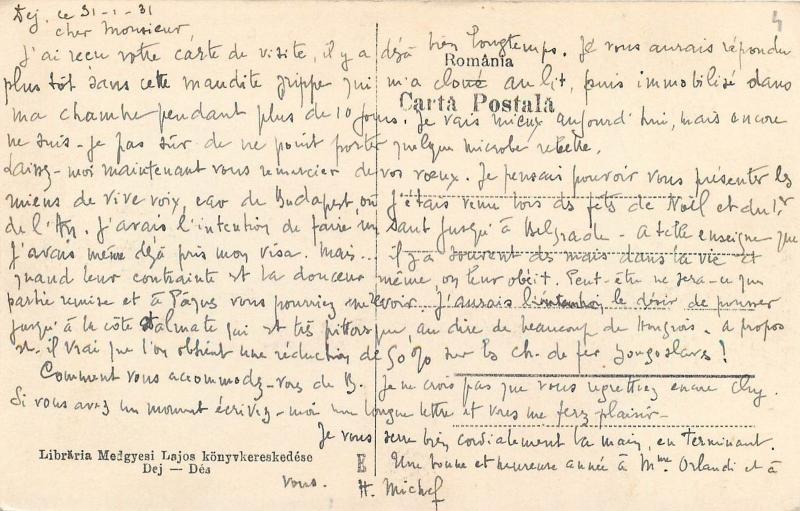 Dej, ce 31-1-31
4
cher Monsieur,
J'ai reçu votre carte de visite, il y a déjà bien longtemps. Je vous aurais répondu
România
plus tôt sans cette maudite grippe qui m'a cloué au lit, puis immobilisé dans
Cartă Postală
ma chambre pendant plus de 10 jours. Je vais mieux aujourd'hui, mais encore
ne suis-je pas sûr de ne point porter quelque microbe rebelle.
Laissez-moi maintenant vous remercier de vos voeux. Je pensais pouvoir vous présenter les
miens de vive voix, car de Budapest, où j'étais venu lors des fêtes de Noël et du 1er
de l'An, j'avais l'intention de faire un saut jusqu'à Belgrade - à telle enseigne que
j'avais même déjà pris mon visa. Mais... il y a souvent des mais dans la vie et
quand leur contrainte est la douceur même, on leur obéit. Peut-être ne sera-ce que
partie remise et à Pâques vous pourriez me voir. J'aurais le désir de pousser
jusqu'à la côte Dalmate qui est très pittoresque au dire de beaucoup de Hongrois. A propos
est-il vrai que l'on obtient une réduction de 50% sur les ch. de fer yougoslaves!
Comment vous accommodez-vous de B. Je ne crois pas que vous regrettiez encore
Si vous avez un moment écrivez-moi une longue lettre et vous me ferez plaisir-
Je vous serre bien cordialement la main, en terminant.
Librăria Medgyesi Lajos könyvkereskedése
Dej — Dés
E
Une bonne et heureuse année à Mme Orlandi et à
vous. H. Michef